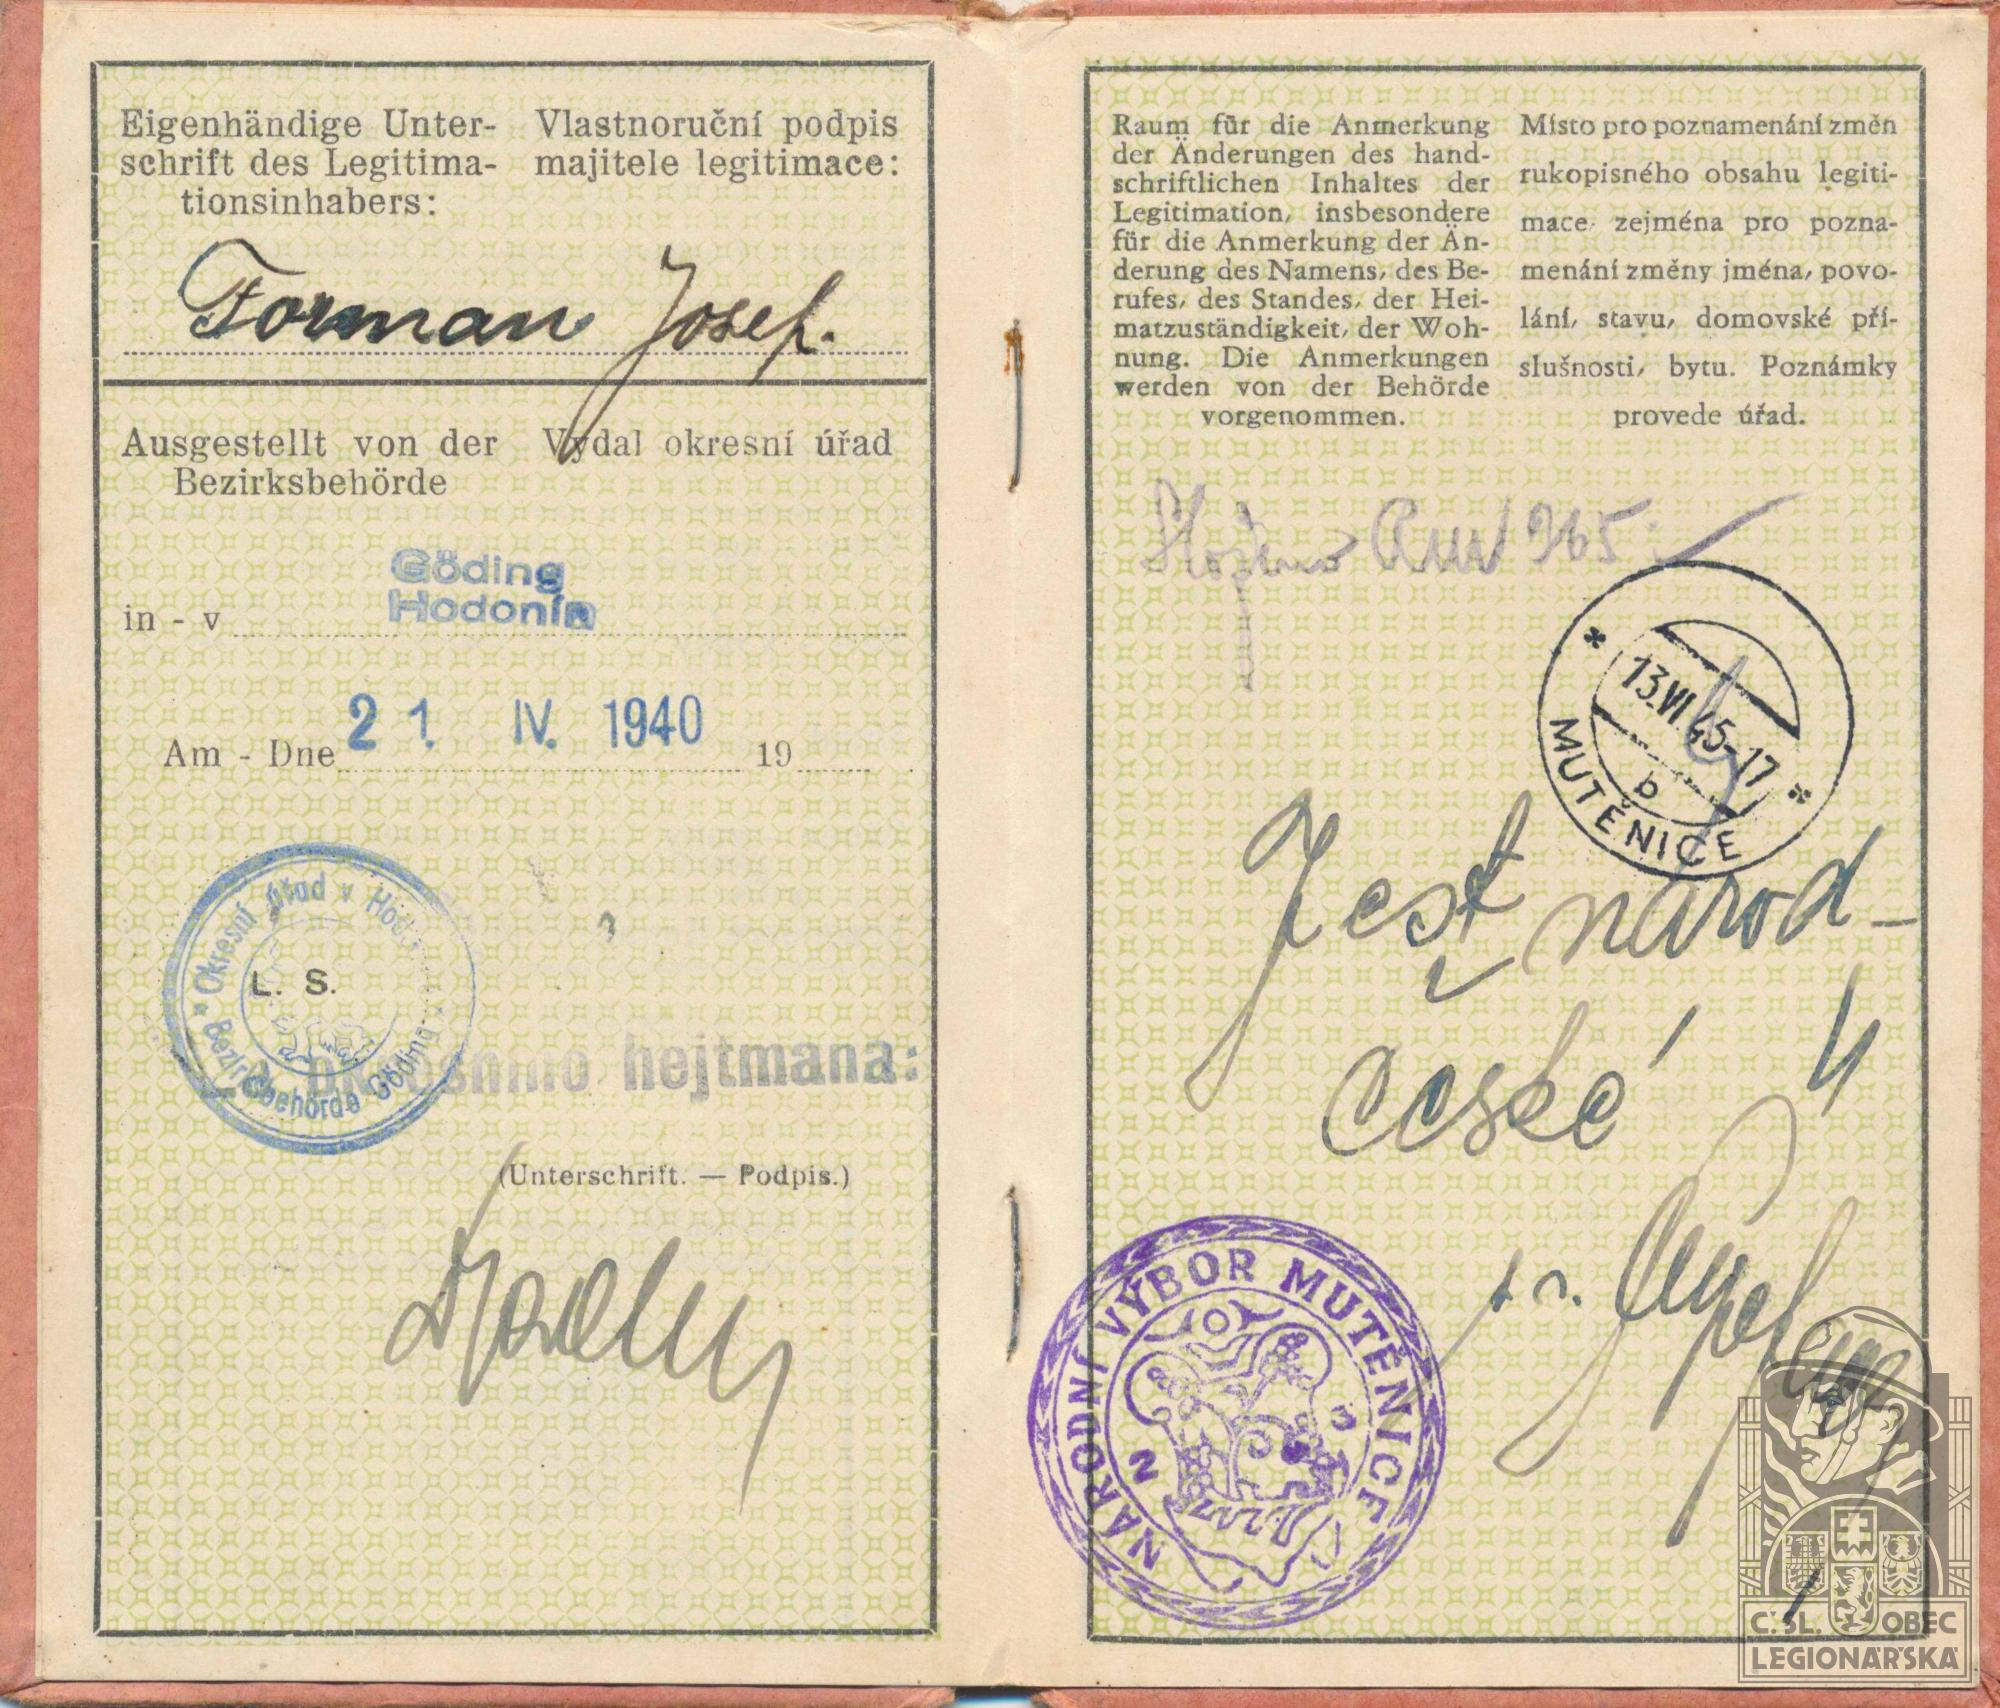 Eigenhändige Unter-
schrift des Legitima-
tionsinhabers:
Vlastnoruční podpis
majitele legitimace:
Forman Josef.
Ausgestellt von der
Bezirksbehörde
Vydal okresní úřad
in - v
Göding
Hodonín
Am - Dne 21. IV. 1940 19
Okresní úřad v Hodo
Bezirksbehörde Göding
L. S.
okresního hejtmana:
(Unterschrift. — Podpis.)
Raum für die Anmerkung
der Änderungen des hand-
schriftlichen Inhaltes der
Legitimation, insbesondere
für die Anmerkung der Än-
derung des Namens, des Be-
rufes, des Standes, der Hei-
matzuständigkeit, der Woh-
nung. Die Anmerkungen
werden von der Behörde
vorgenommen.
Místo pro poznamenání změn
rukopisného obsahu legiti-
mace, zejména pro pozna-
menání změny jména, povo-
lání, stavu, domovské pří-
slušnosti, bytu. Poznámky
provede úřad.
13.VI.45-17
b
MUTĚNICE
Jest národ-
české
NÁRODNÍ VÝBOR MUTĚNICE
2 3
Č.SL. OBEC
LEGIONÁŘSKÁ